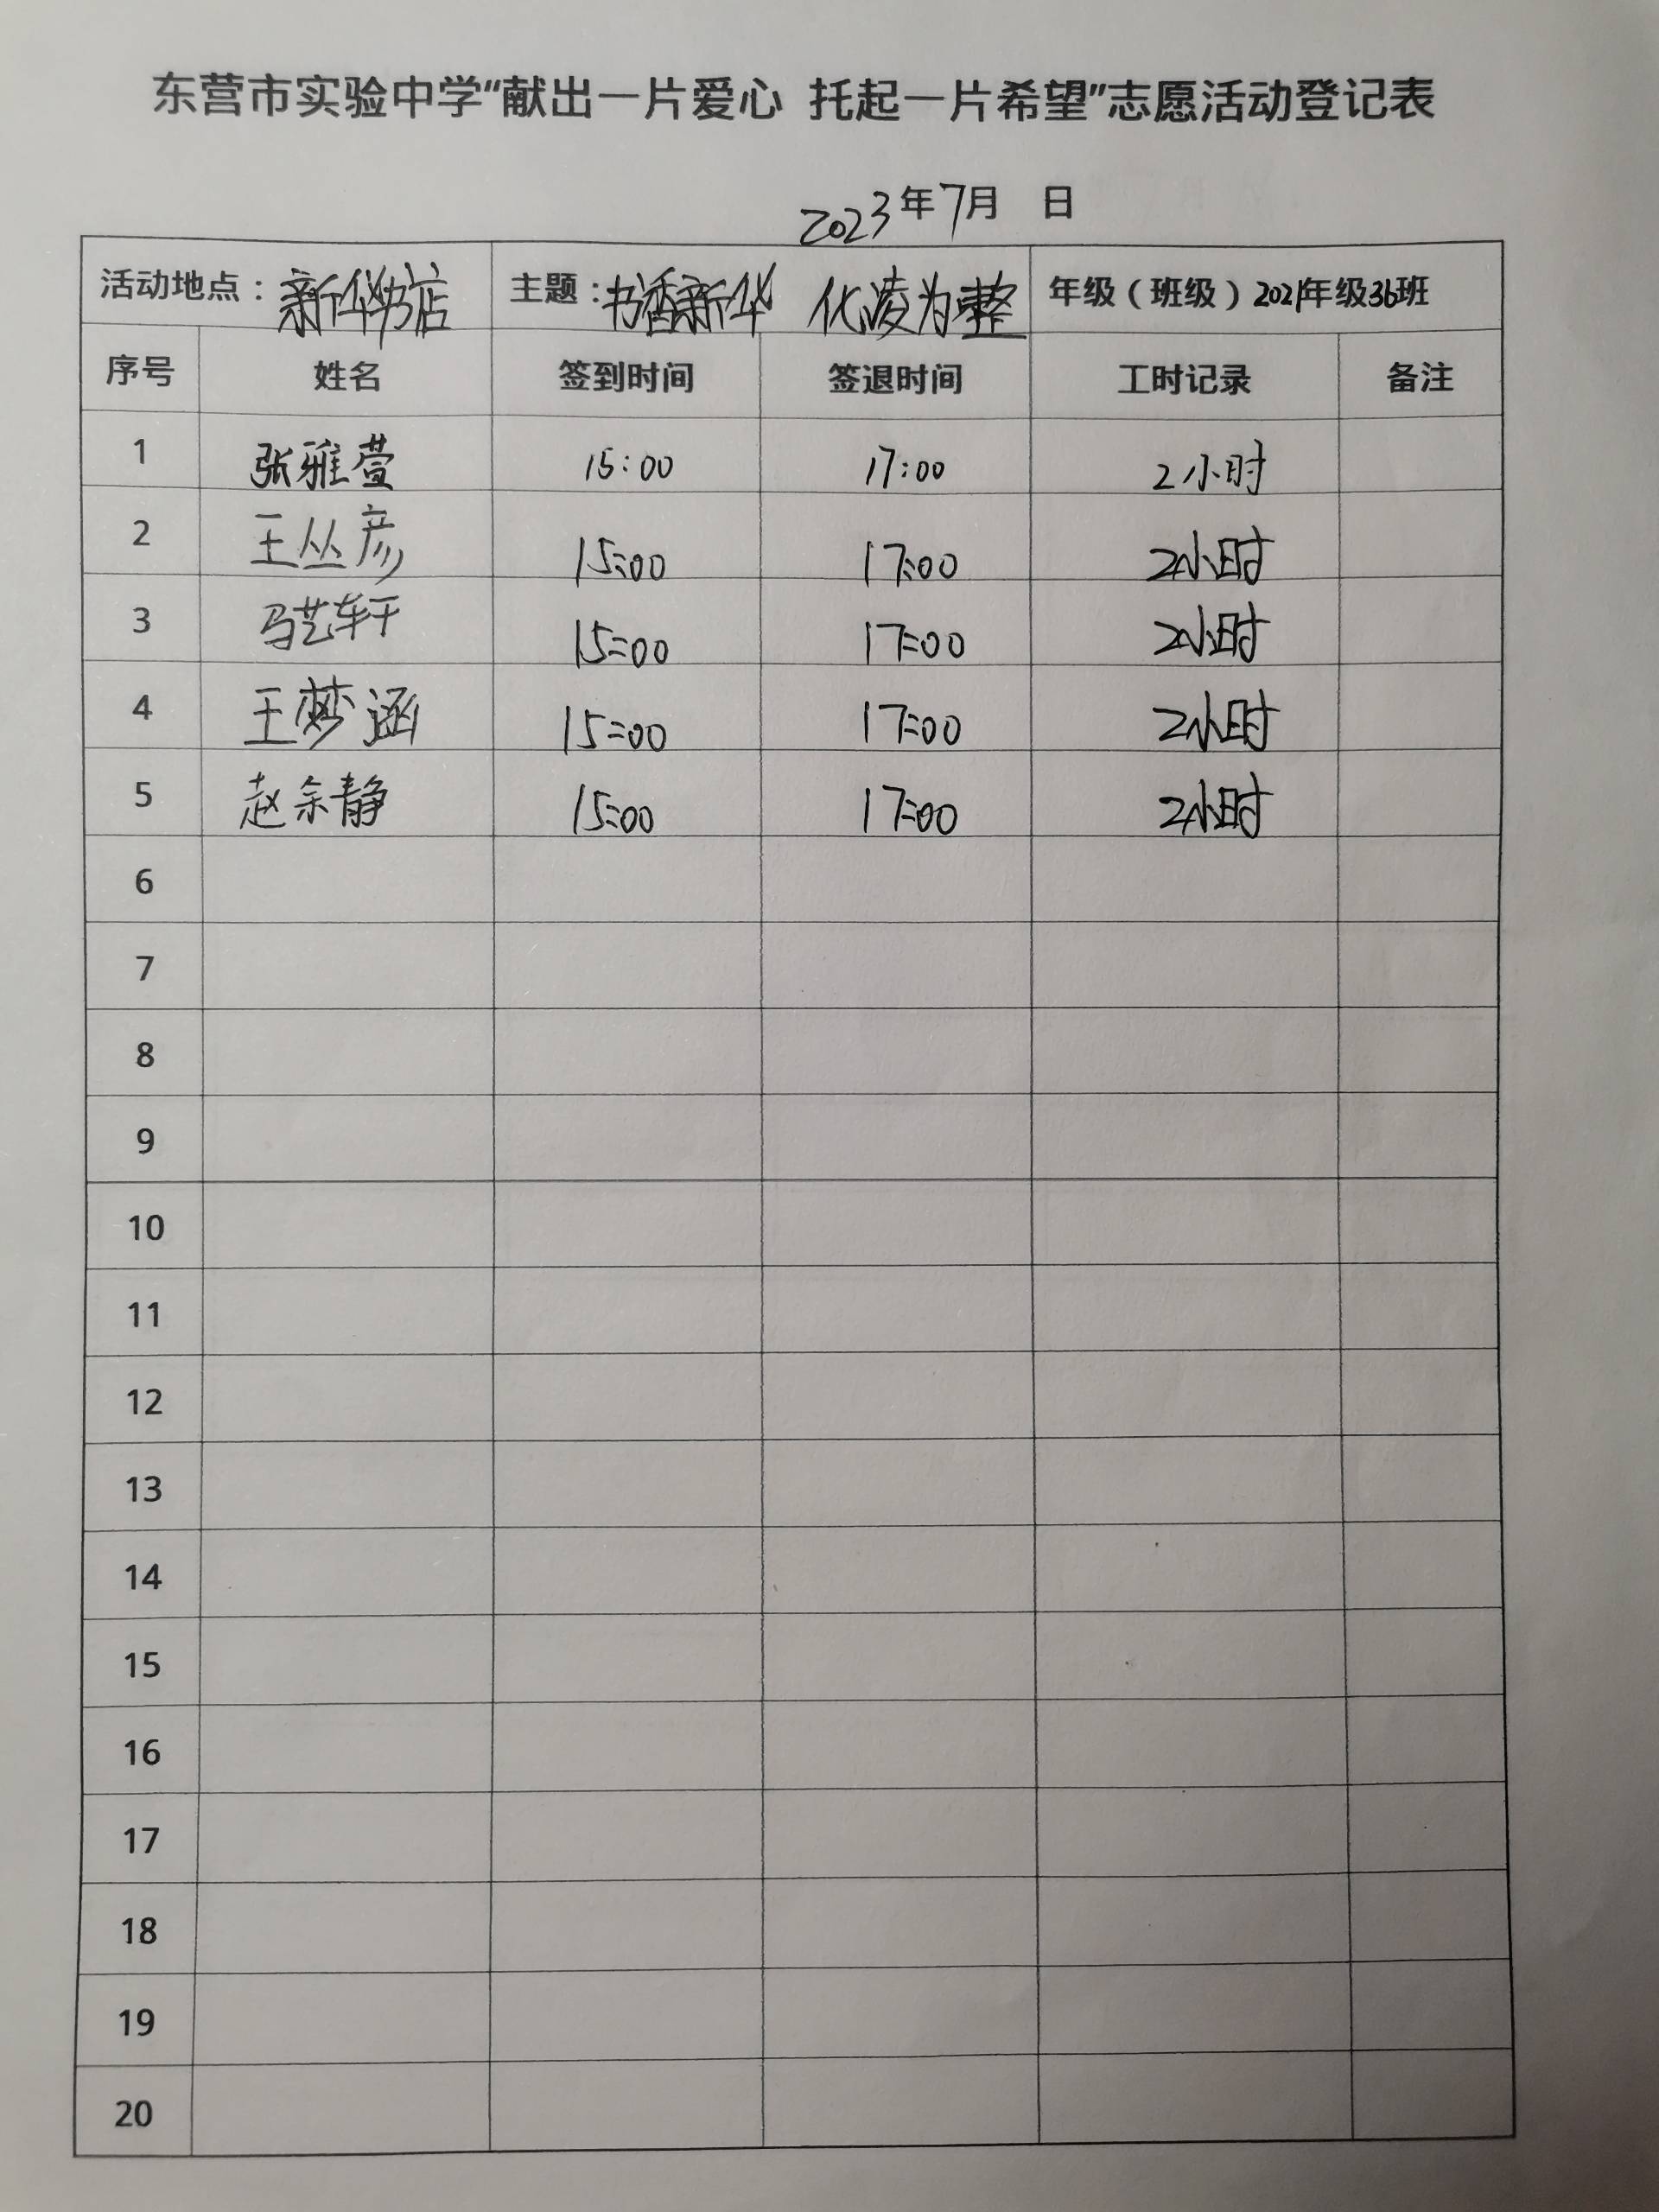 东营市实验中学“献出一片爱心 托起一片希望”志愿活动登记表
2023年7月 日
活动地点：新华书店 主题：书香新华 化凌为整 年级（班级）2021年级36班
序号 姓名 签到时间 签退时间 工时记录 备注
1 张雅萱 15:00 17:00 2小时
2 王丛彦 15:00 17:00 2小时
3 马艺轩 15:00 17:00 2小时
4 王梦涵 15:00 17:00 2小时
5 赵余静 15:00 17:00 2小时
6
7
8
9
10
11
12
13
14
15
16
17
18
19
20